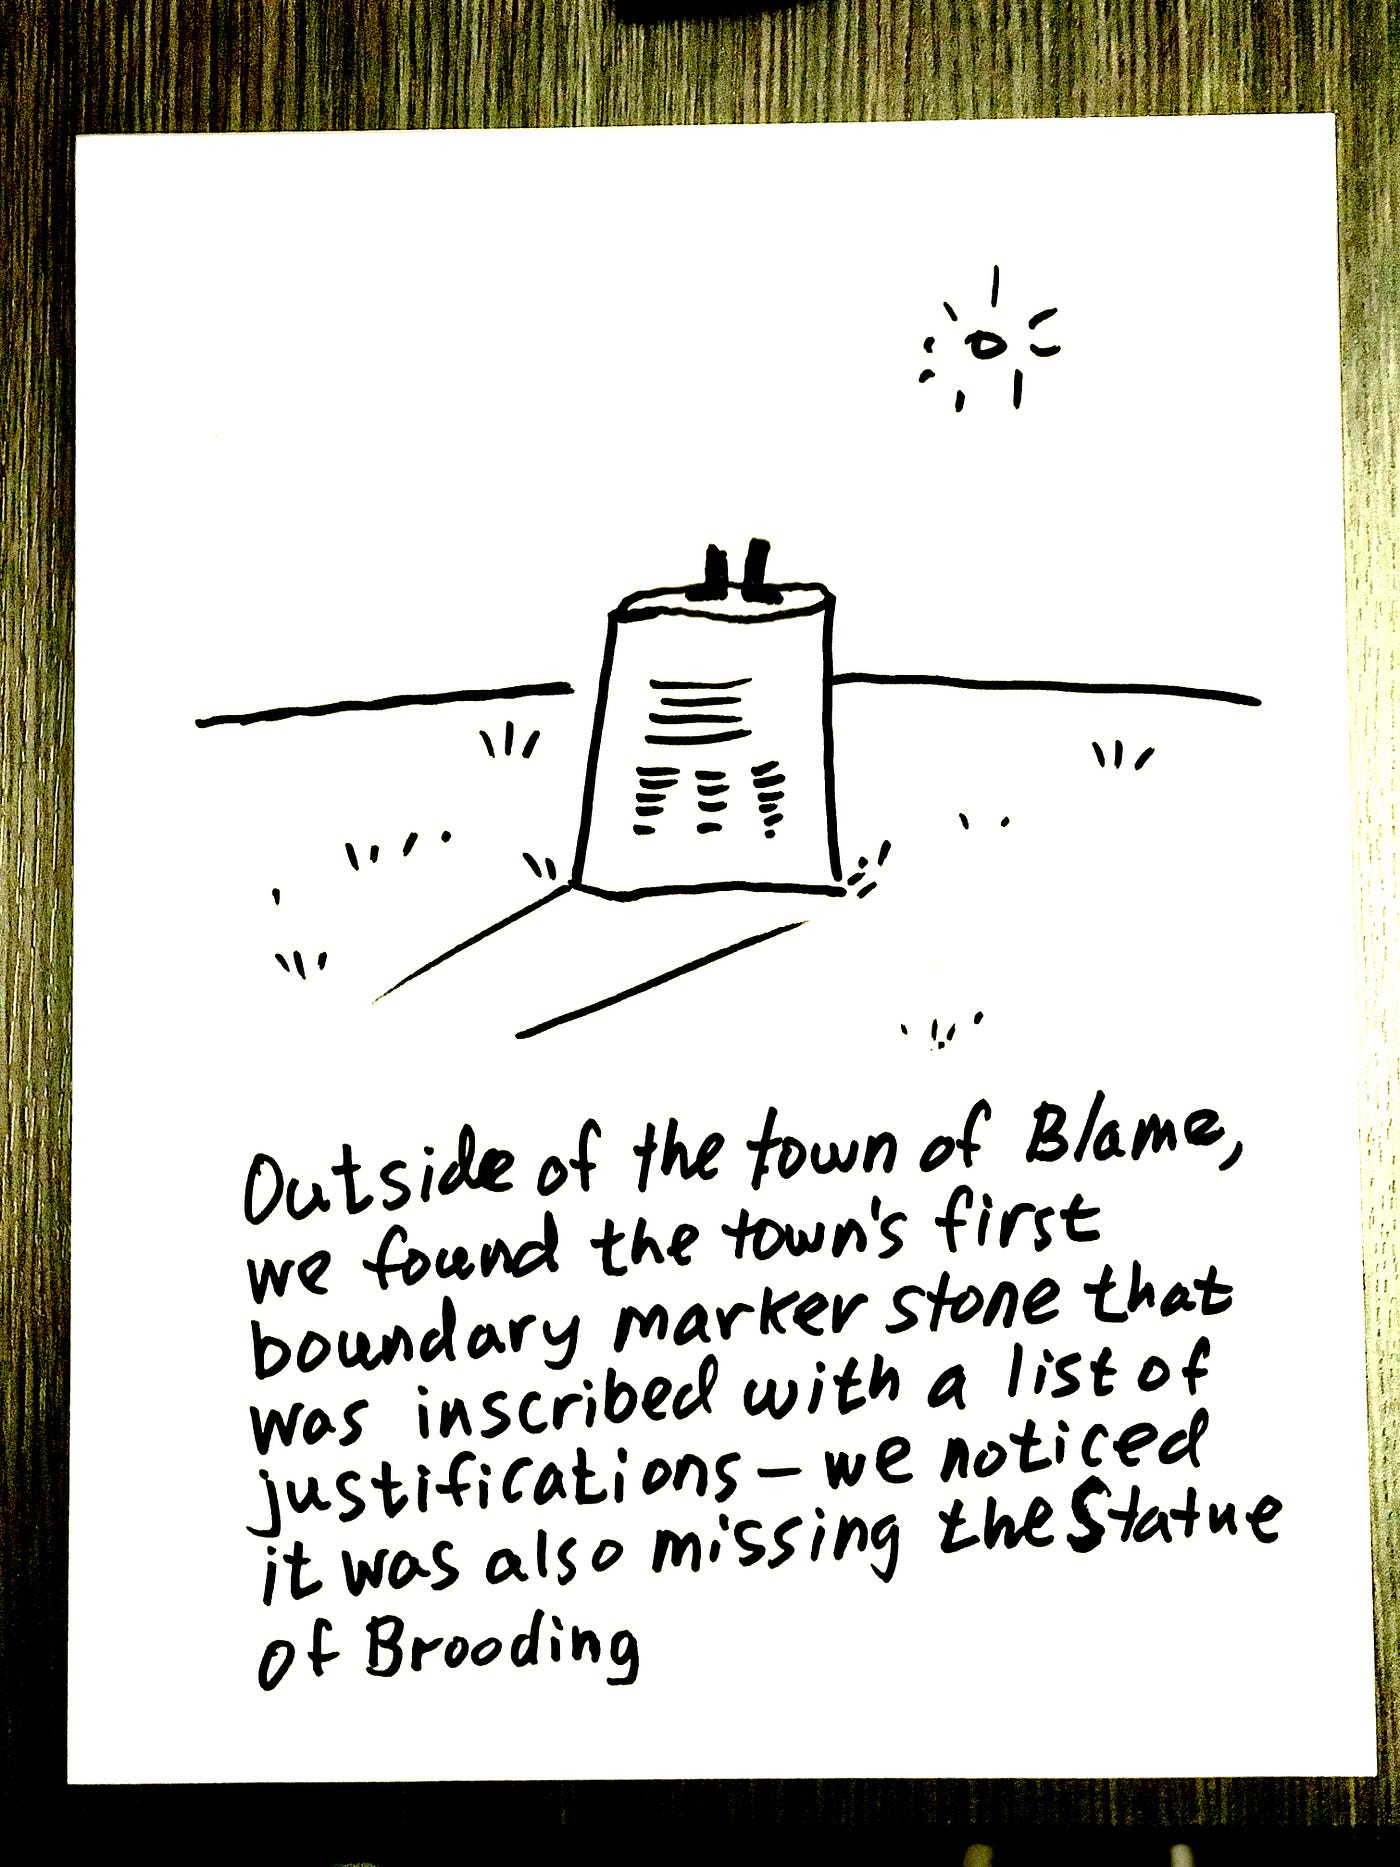 Outside of the town of Blame,
we found the town's first
boundary marker stone that
was inscribed with a list of
justifications — we noticed
it was also missing the Statue
of Brooding